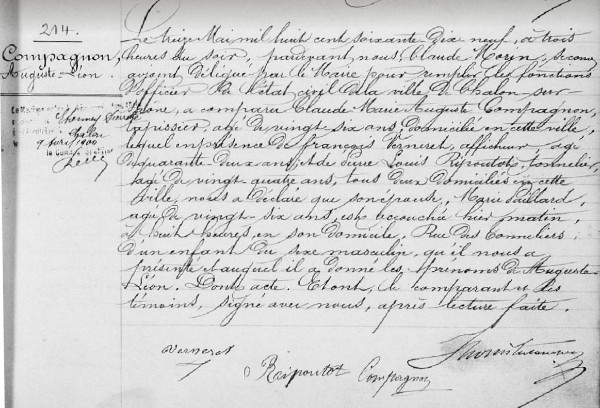 214.
Compagnon,
Auguste-Léon.
9 Avril 1900
Le treize Mai mil huit cent soixante-dix neuf, à trois
heures du soir, pardevant nous, Claude Morin, second
adjoint, Délégué par le Maire pour remplir les fonctions
d'officier de l'état civil de la ville de Chalon-sur-
Saône, a comparu Claude Marie Auguste Compagnon,
tapissier, âgé de vingt-six ans, domicilié en cette ville,
lequel en présence de François Verneret, afficheur, âgé
de quarante deux ans, et de Pierre Louis Ripoutot, tonnelier,
âgé de vingt-quatre ans, tous deux domiciliés en cette
ville, nous a déclaré que son épouse, Marie Paillard,
âgée de vingt-six ans, est accouchée hier matin,
à huit heures, en son domicile, Rue des Tonneliers
d'un enfant du sexe masculin, qu'il nous a
présenté et auquel il a donné les prénoms de Auguste
Léon. Dont acte. Et ont, le comparant et les
témoins, signé avec nous, après lecture faite.
Verneret
Ripoutot Compagnon